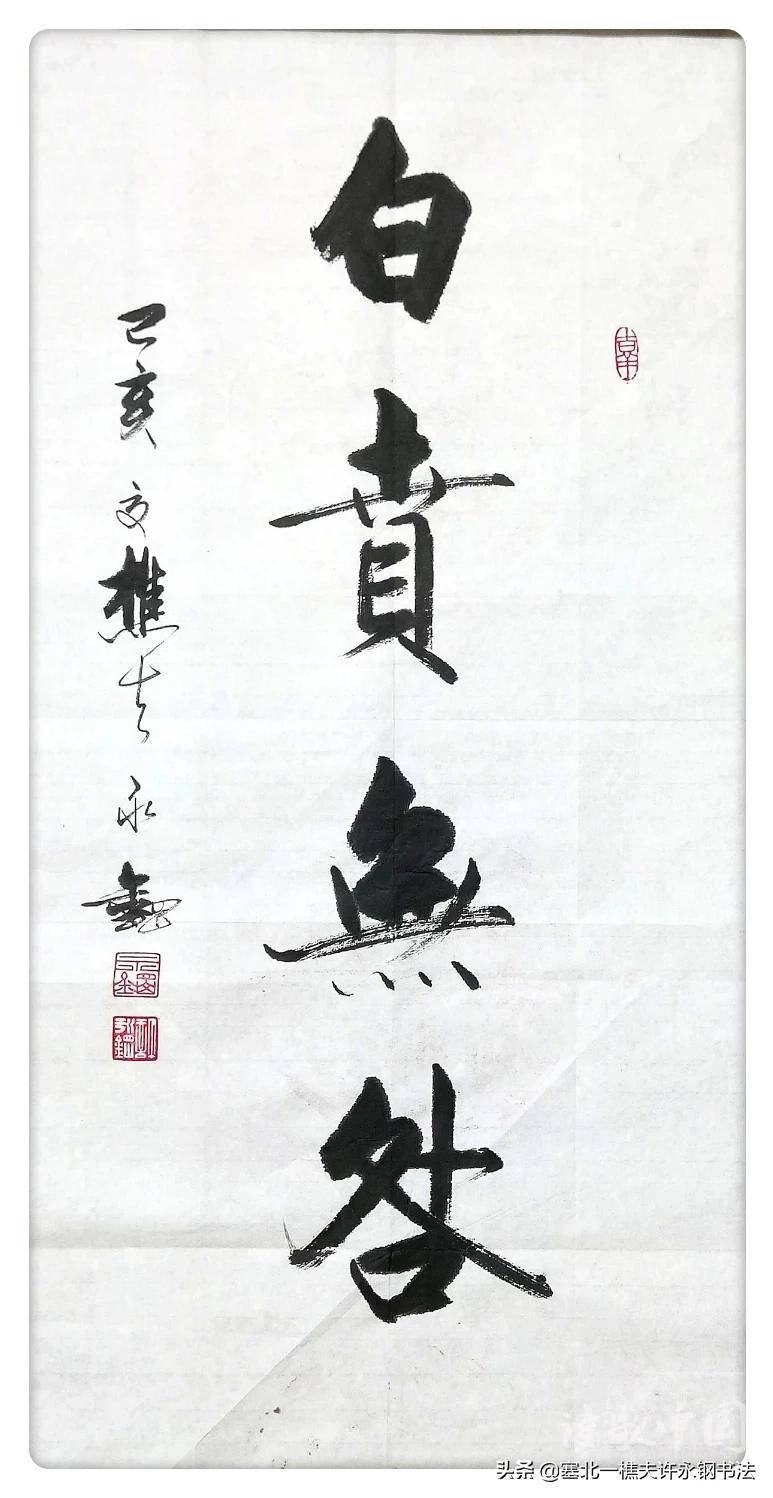 白賁無咎
己亥 文樵夫 永鋼
头条 @塞北一樵夫许永钢书法